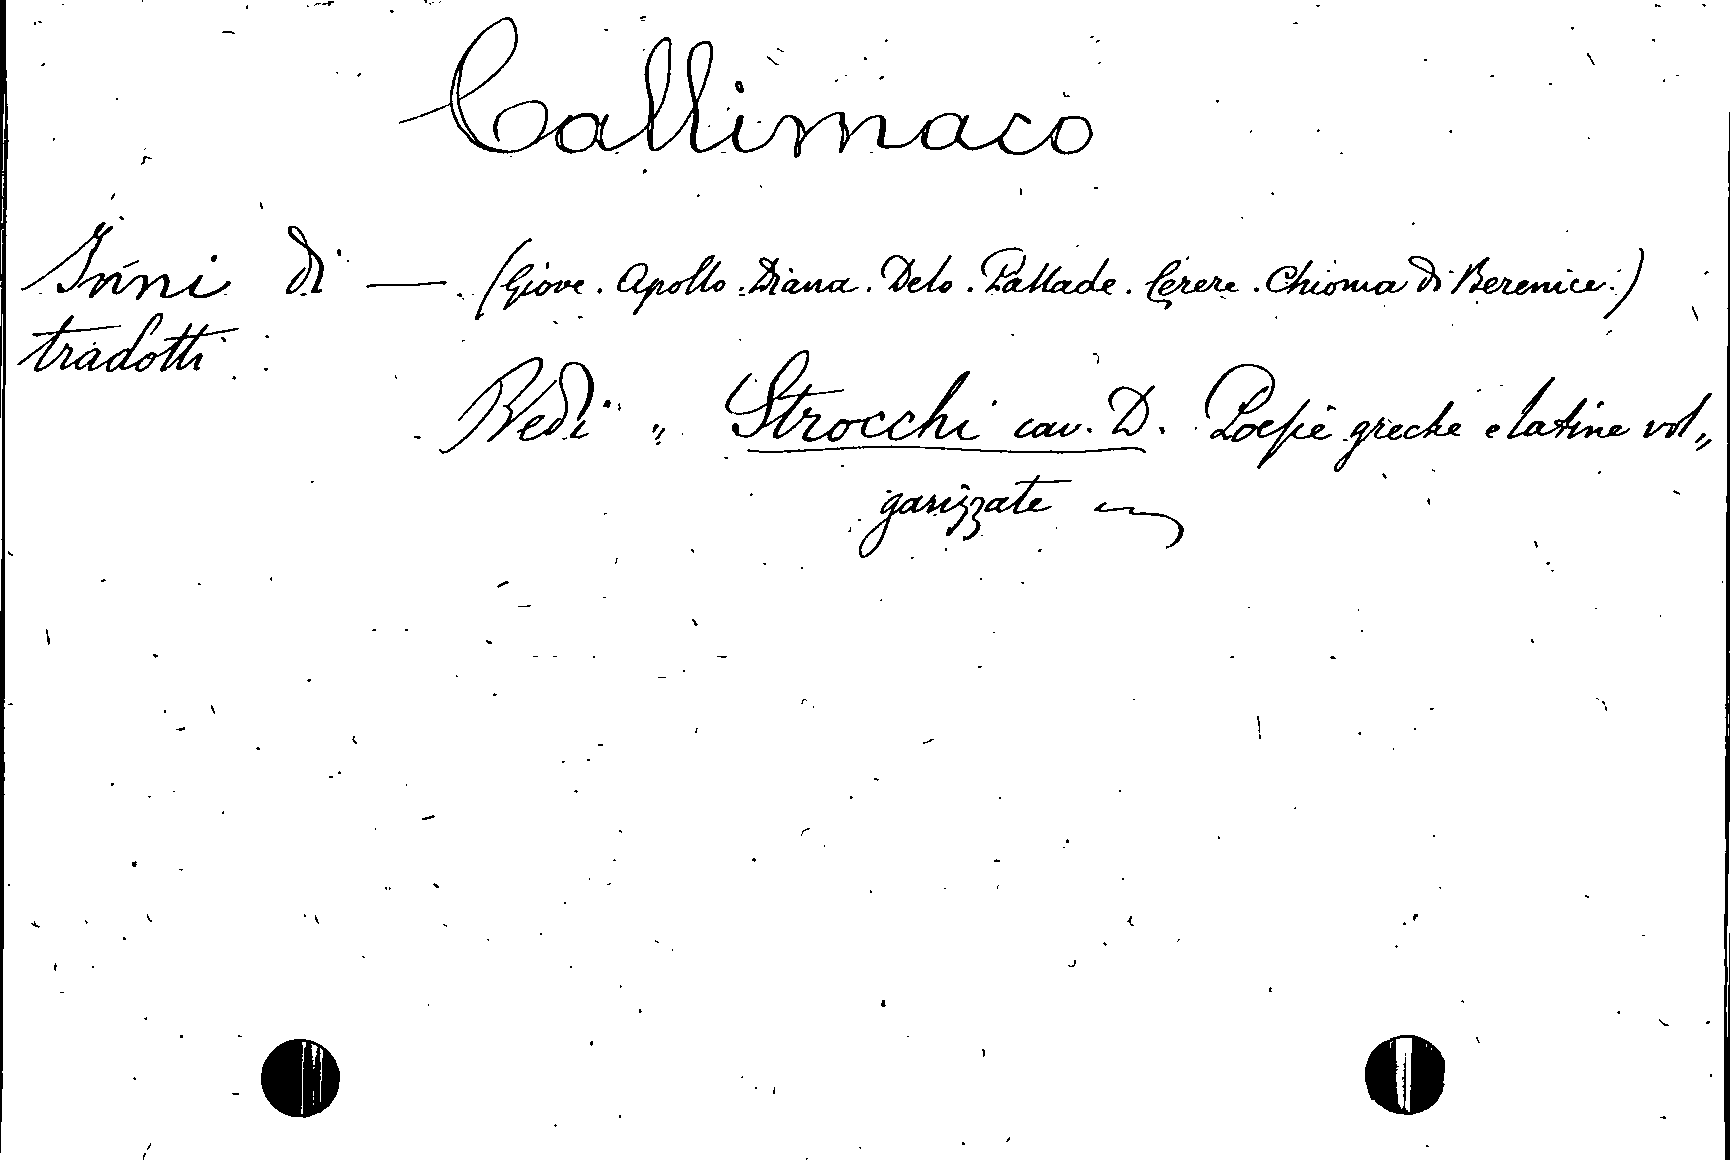 Callimaco
Inni di — (Giove. Apollo. Diana. Delo. Pallade. Cerere. Chioma di Berenice.)
tradotti
Vedi „ Strocchi cav. D. Poesie greche e latine vol„
garizzate